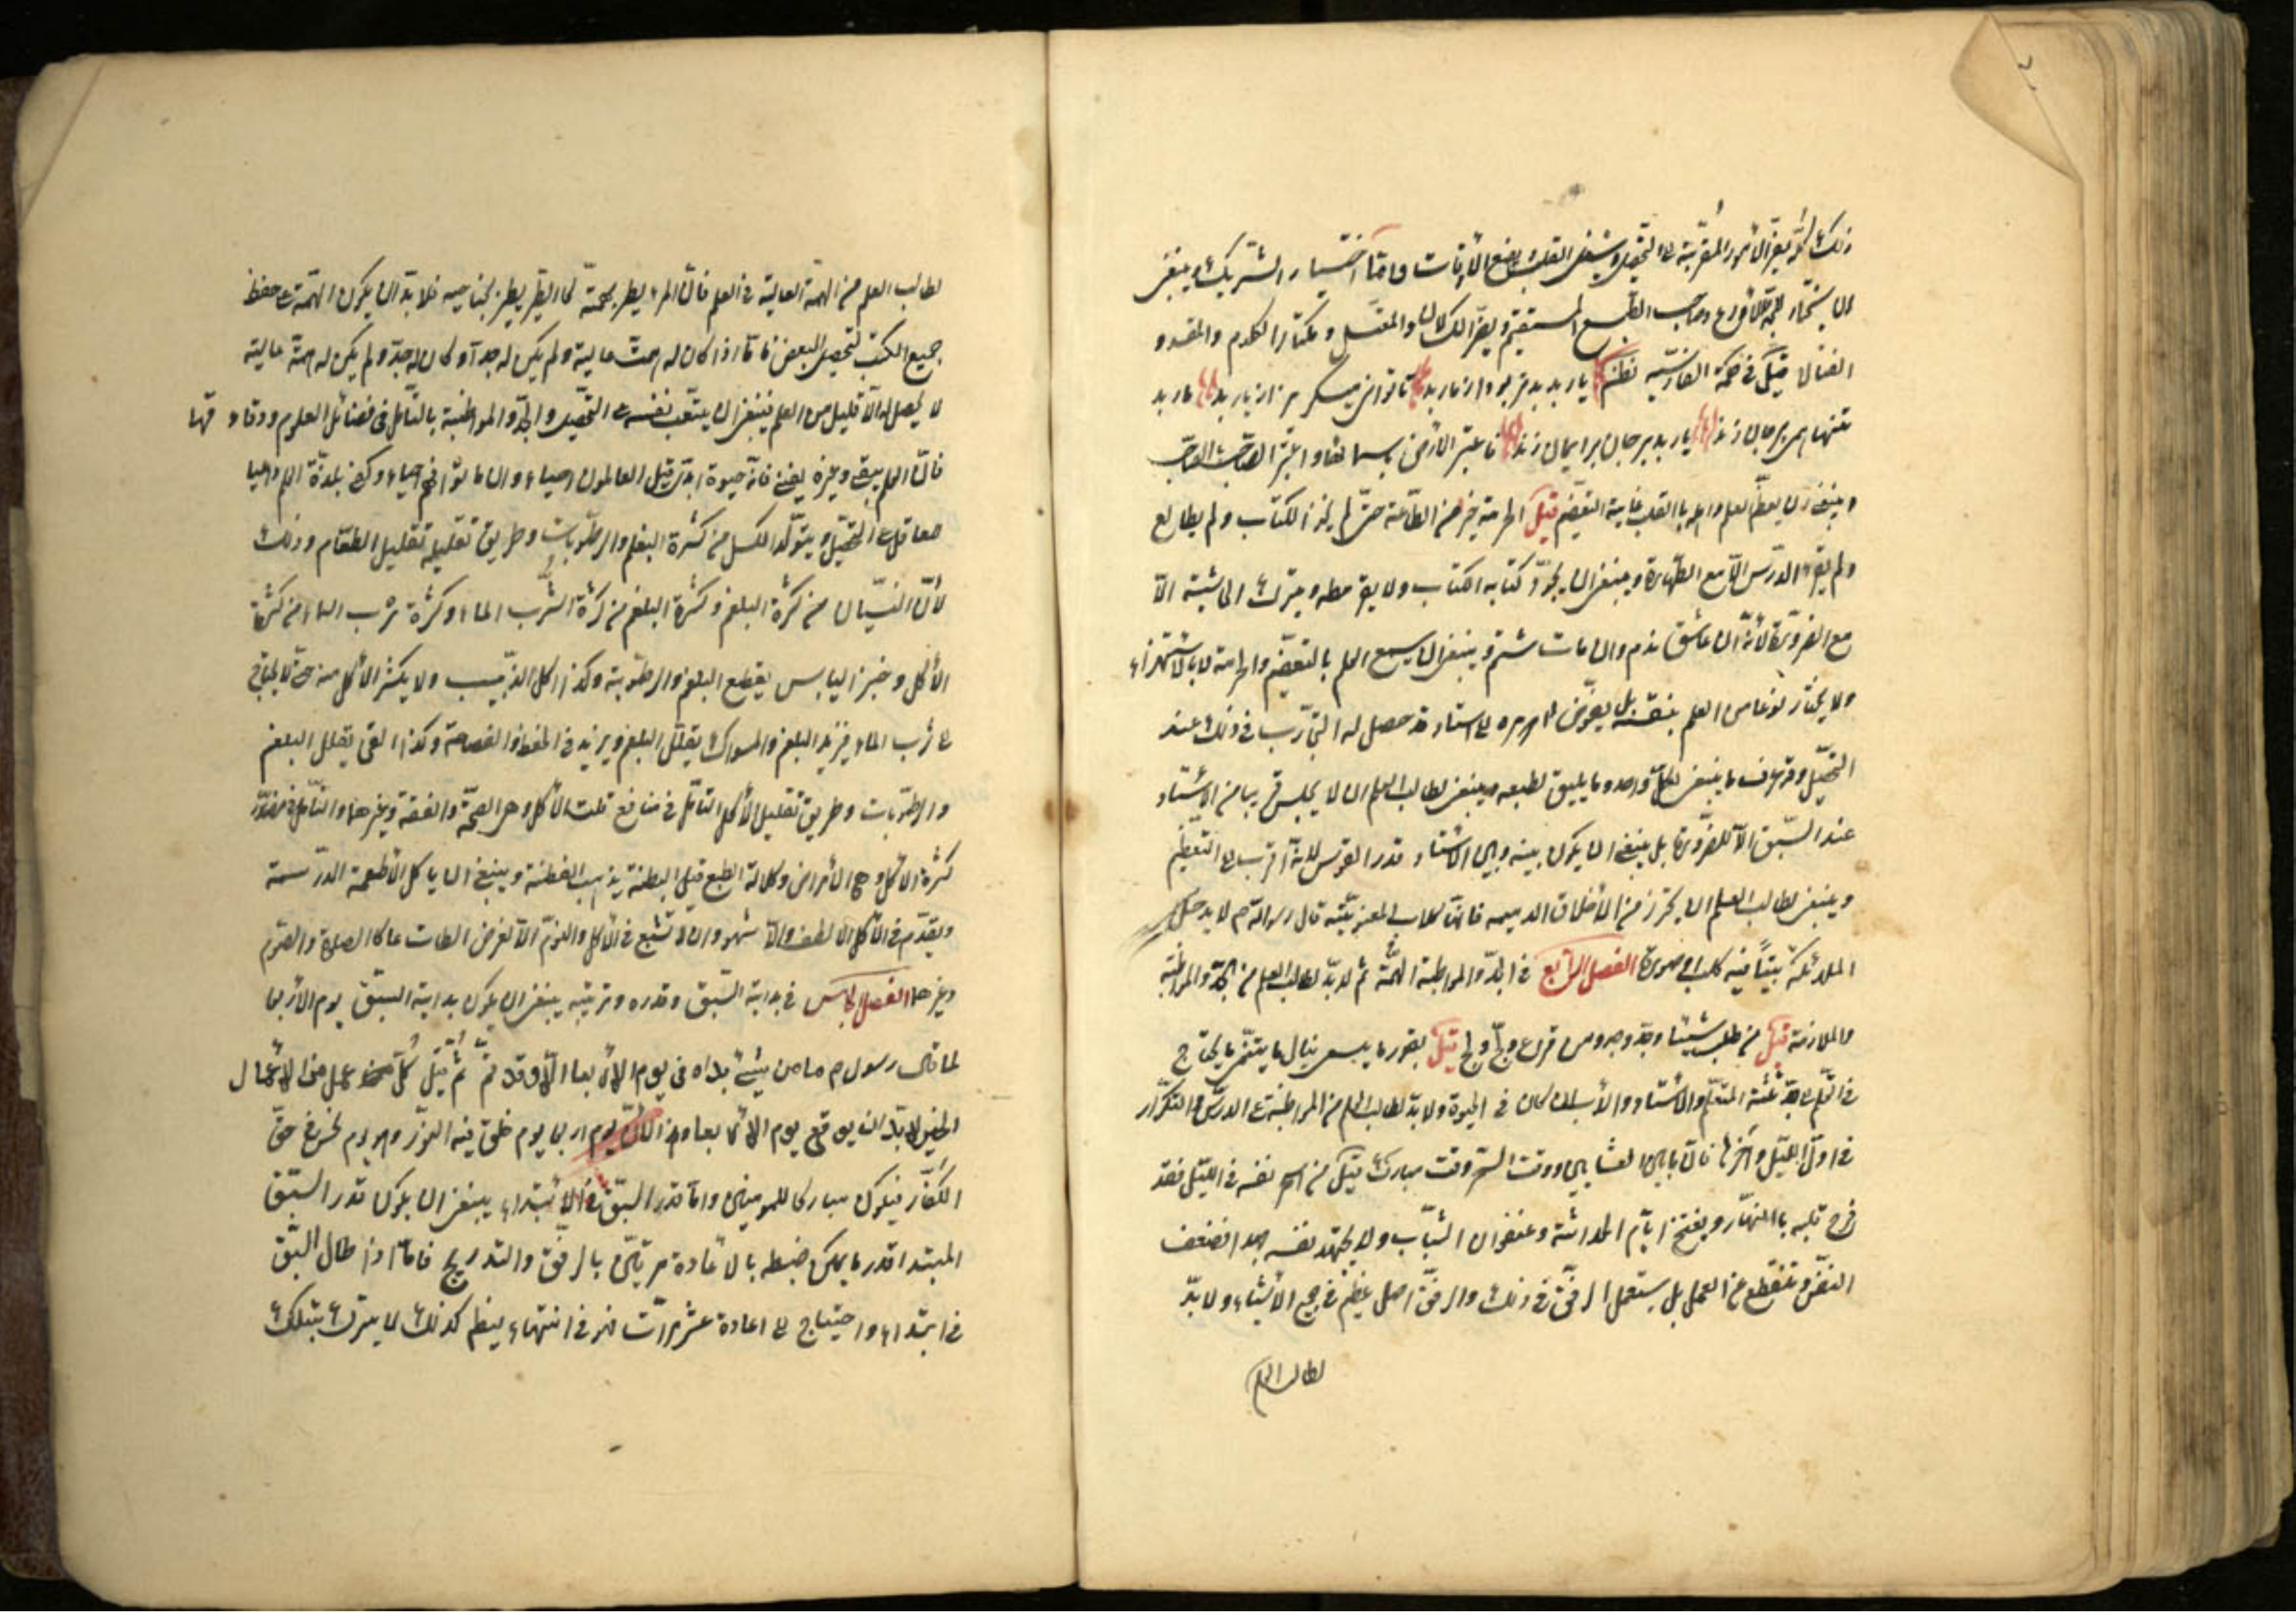 ذلك لأنه يغير الأمور المقربة الى التحصيل ويشغل القلب ويضيع الأوقات واما اختيار الشريك وينبغى
ان يختار المجد والأورع وصاحب الطبع المستقيم ويفر من الكسلان والمعطل ومكثار الكلام والمفسد و
الفتان قيل فى حكمة الفارسية نظم يار بد بدتر بود از مار بد تا توانى ميگريز از يار بد مار بد
تنها همى بر جان زند يار بد بر جان بر ايمان زند فاعتبر الأرض باسمائها واعتبر الصاحب بالصاحب
وينبغى ان يعظم العلم واهله بالقلب غاية التعظيم قيل الحرمة خير من الطاعة حتى لم يأخذ الكتاب ولم يطالع
ولم يقرء الدرس الا مع الطهارة وينبغى ان يجود كتابه الكتاب ولا يقرمطه ويترك الحاشية الا
مع الضرورة لأنه ان عاش ندم وان مات شتم وينبغى ان يسمع العلم بالتعظيم والحرمة لا بالاستهزاء
ولا يختار نوعا من العلم بنفسه بل يفوض امره الى استاد قد حصل له التجارب فى ذلك عند
التحصيل وقد عرف ما ينبغى لكل واحد وما يليق لطبعه وينبغى لطالب العلم ان لا يجلس قريبا من الاستاد
عند السبق الا للضرورة بل ينبغى ان يكون بينه وبين الاستاد قدر القوس لانه اقرب الى التعظيم
وينبغى لطالب العلم ان يحترز من الأخلاق الذميمه فانها كلاب المعنوية قال رسول الله ص لا يدخل
الملائكة بيتاً فيه كلب او صورة الفصل الرابع فى الجد والمواظبة والهمة ثم لابد لطالب العلم من الجد والمواظبة
والملازمة قيل من طلب شيئا وجد وجد ومن قرع وَلَجَّ ولج قيل بقدر ما يسعى ينال ما يتمنى يحتاج
فى التعلم الى جد ثلثة المتعلم والأستاد والأب ان كان فى الحيوة ولابد لطالب العلم من المواظبة على الدرس والتكرار
فى اول الليل وآخره فان ما بين العشائين ووقت السحر وقت مبارك قيل من اسهر نفسه فى الليل فقد
فرح قلبه بالنهار ويغتنم ايام الحداثة وعنفوان الشباب ولا يجهد نفسه جهدا يضعف
النفس وتنقطع عن العمل بل يستعمل الرفق فى ذلك والرفق اصل عظيم فى جميع الأشياء ولابد
لطالب العلم
لطالب العلم من الهمة العالية فى العلم فان المرء يطير بهمته كالطير يطير بجناحيه فلابد ان يكون الهمة على حفظ
جميع الكتب لتحصيل البعض فاما اذا كان له همة عالية ولم يكن له جد او كان له جد ولم يكن له همة عالية
لا يحصل له الا قليل من العلم فينبغى ان يتعب نفسه على التحصيل والجد والمواظبة بالتأمل فى فضائل العلوم ودقائقها
فان العلم يبقى وغيره يفنى فانه حيوة ابدى قيل العالمون احياء وان ماتوا فهم احياء وكفى بلذة العلم داعيا
للعاقل الى التحصيل ويتولد الكسل من كثرة البلغم والرطوبات وطريق تقليله تقليل الطعام وذلك
لأن النسيان من كثرة البلغم وكثرة البلغم من كثرة الشرب الماء وكثرة شرب الماء من كثرة
الأكل وخبز اليابس يقطع البلغم والرطوبة وكذا اكل الزبيب ولا يكثر الأكل منه حتى لا يحتاج
الى شرب الماء فيزيد البلغم والمسواك يقلل البلغم ويزيد فى الحفظ والفصاحة وكذا القى يقلل البلغم
والرطوبات وطريق تقليل الأكل التأمل فى منافع قلة الأكل وهى الصحة والعفة وغيرهما والتأمل فى مضار
كثرة الأكل وهى الأمراض وكلالة الطبع قيل البطنة يذهب الفطنة وينبغى ان ياكل الأطعمة الدسمة
ويقدم فى الأكل الالطف والاشهى وان لا تشبع فى الأكل والنوم الا لغرض الطاعت كالصلوة والصوم
وغيرهما الفصل الخامس فى بداية السبق وقدره وترتيبه ينبغى ان يكون بداية السبق يوم الأربعا
لما قال رسول ص ما من شئ بداه فى يوم الأربعا الا وقد تم ثم قيل كل عمل من الأعمال
الخير لابد ان يوقع يوم الأربعا وهذا لأن يوم اربعا يوم خلق فيه النور وهو يوم نحس فى حق
الكفار فيكون مباركا للمومنين واما قدر السبق فى الابتداء ينبغى ان يكون قدر السبق
المبتدا قدر ما يمكن ضبطه بالاعادة مرتين بالرفق والتدريج فاما اذا طال السبق
فى ابتداء واحتياج الى اعادة عشر مرات فهو فى انتهاء ايضا كذلك لا يترك بتلك